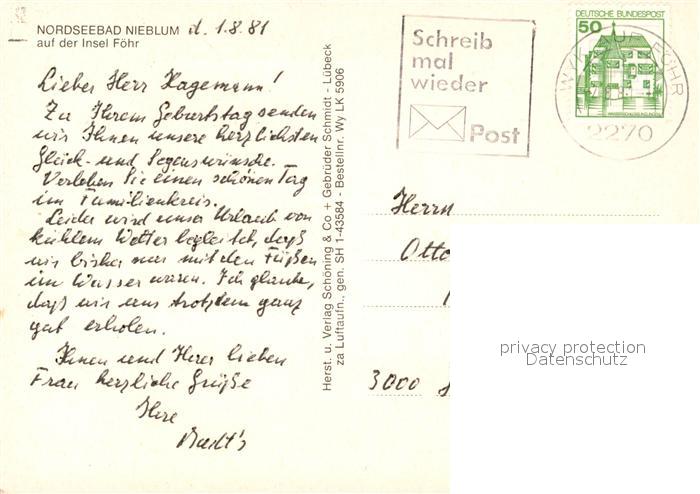 NORDSEEBAD NIEBLUM d. 1.8.81
auf der Insel Föhr
Lieber Herr Hagemann!
Zu Ihrem Geburtstag senden
wir Ihnen unsere herzlichsten
Glück- und Segenswünsche.
Verleben Sie einen schönen Tag
im Familienkreis.
Leider wird unser Urlaub von
kühlem Wetter begleitet, daß
wir bisher nur mit den Füßen
im Wasser waren. Ich glaube,
daß wir uns trotzdem ganz
gut erholen.
Ihnen und Ihrer lieben
Frau herzliche Grüße
Ihre
Herst. u. Verlag Schöning & Co + Gebrüder Schmidt - Lübeck
zu Luftaufn., gen. SH 1-43584 - Bestellnr. Wy LK 5906
Schreib
mal
wieder
Post
DEUTSCHE BUNDESPOST
50
WYK AUF FÖHR
2270
Herrn
Otto
3000
privacy protection
Datenschutz